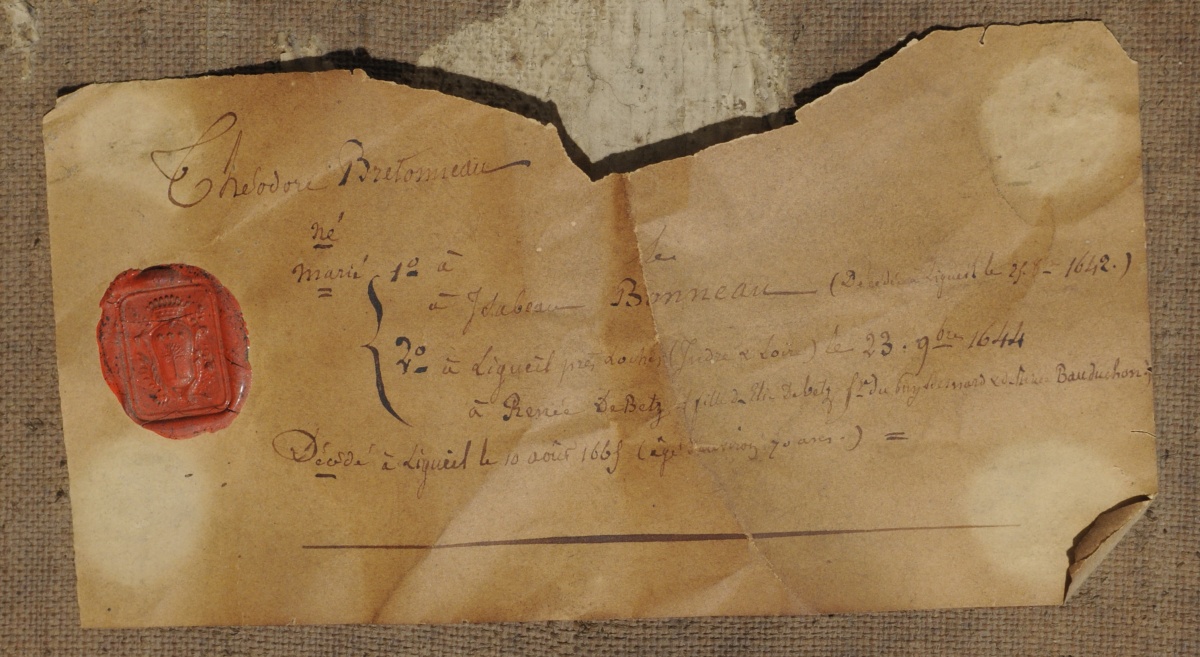 Théodore Bretonneau
né
marié 1º à le
à Isabeau Bonneau (Décédée à Ligueil le 1642.)
2º à Ligueil près Loches (Indre & Loire) le 23. 9bre 1644
à Renée De Betz (fille de de betz Sr du & de Bauduchon)
Décédé à Ligueil le 10 août 1665 (âgé d'environ 70 ans.) =